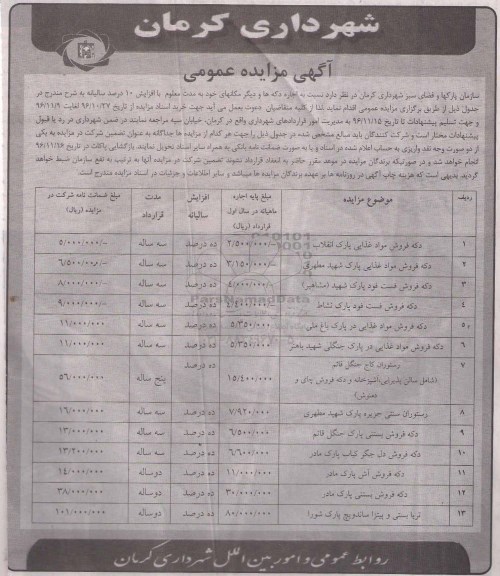 شهرداری کرمان
آگهی مزایده عمومی
سازمان پارکها و فضای سبز شهرداری کرمان در نظر دارد نسبت به اجاره دکه ها و دیگر مکانهای خود به مدت معلوم با افزایش ۱۰ درصد سالیانه به شرح مندرج در
جدول ذیل از طریق برگزاری مزایده عمومی اقدام نماید، لذا از کلیه متقاضیان دعوت بعمل می آید جهت خرید اسناد مزایده از تاریخ ۹۶/۱۰/۲۷ لغایت ۹۶/۱۱/۹
و جهت تسلیم پیشنهادات تا تاریخ ۹۶/۱۱/۱۵ به مدیریت امور قراردادهای شهرداری واقع در کرمان، خیابان سپه مراجعه نمایند در ضمن شهرداری در رد یا قبول
پیشنهادات مختار است و شرکت کنندگان باید مبالغ مشخص شده در جدول ذیل را جهت هر کدام از مزایده ها جداگانه به عنوان تضمین شرکت در مزایده به یکی
از دو صورت وجه نقد واریزی به حساب اعلام شده در اسناد و یا به صورت ضمانت نامه بانکی به همراه سایر اسناد تحویل نمایند. بازگشایی پاکات در تاریخ ۹۶/۱۱/۱۶
انجام خواهد شد و در صورتیکه برندگان مزایده در موعد مقرر حاضر به انعقاد قرارداد نشوند تضمین شرکت در مزایده آنها به ترتیب به نفع سازمان ضبط خواهد
گردید. بدیهی است که هزینه چاپ آگهی در روزنامه ها بر عهده برندگان مزایده ها میباشد و سایر اطلاعات و جزئیات در اسناد مزایده مندرج است.
ردیف موضوع مزایده مبلغ پایه اجاره ماهیانه در سال اول قرارداد (ریال) افزایش سالیانه مدت قرارداد مبلغ ضمانت نامه شرکت در مزایده (ریال)
۱ دکه فروش مواد غذایی پارک انقلاب ۲/۵۰۰/۰۰۰/- ده درصد سه ساله ۵/۰۰۰/۰۰۰/-
۲ دکه فروش مواد غذایی پارک شهید مطهری ۳/۱۵۰/۰۰۰/- ده درصد سه ساله ۶/۵۰۰/۰۰۰/-
۳ دکه فروش فست فود پارک شهید (مشاهیر) ۴/۰۰۰/۰۰۰/- ده درصد سه ساله ۸/۰۰۰/۰۰۰/-
۴ دکه فروش فست فود پارک نشاط ده درصد سه ساله ۹/۰۰۰/۰۰۰/-
۵ دکه فروش مواد غذایی در پارک باغ ملی ۵/۳۵۰/۰۰۰ ده درصد سه ساله ۱۱/۰۰۰/۰۰۰
۶ دکه فروش مواد غذایی در پارک جنگلی شهید باهنر ۵/۳۵۰/۰۰۰ ده درصد سه ساله ۱۱/۰۰۰/۰۰۰
۷ رستوران کاج جنگل قائم (شامل سالن پذیرایی، آشپزخانه و دکه فروش چای و دمنوش) ۱۵/۴۰۰/۰۰۰ ده درصد پنج ساله ۵۶/۰۰۰/۰۰۰
۸ رستوران سنتی جزیره پارک شهید مطهری ۷/۹۲۰/۰۰۰ ده درصد سه ساله ۱۶/۰۰۰/۰۰۰
۹ دکه فروش بستنی پارک جنگل قائم ۶/۵۰۰/۰۰۰ ده درصد سه ساله ۱۳/۰۰۰/۰۰۰
۱۰ دکه فروش دل جگر کباب پارک مادر ۶/۶۰۰/۰۰۰ ده درصد سه ساله ۱۳/۲۰۰/۰۰۰
۱۱ دکه فروش آش پارک مادر ۱۱/۰۰۰/۰۰۰ ده درصد دوساله ۱۴/۰۰۰/۰۰۰
۱۲ دکه فروش بستنی پارک مادر ۳۰/۰۰۰/۰۰۰ ده درصد دوساله ۳۸/۰۰۰/۰۰۰
۱۳ تریا بستی و پیتزا ساندویچ پارک شورا ۸۰/۰۰۰/۰۰۰ ده درصد دوساله ۱۰۱/۰۰۰/۰۰۰
روابط عمومی و امور بین الملل شهرداری کرمان